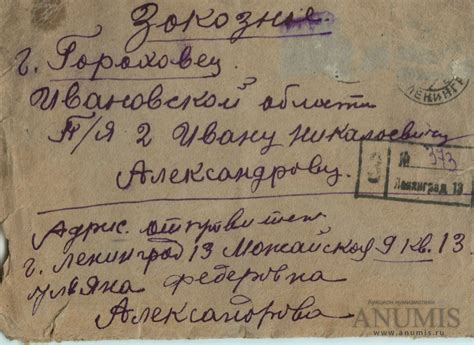 Зоказное
г. Гороховец
Ивановской области
П/Я 2 Ивану Николоевичу
Александрову.
ЛЕНИНГР
З № 373
Ленинград, 13
Адрис. отправител
г. Ленинград 13 Можайская 9 кв. 13.
Ульяна Федеровна
Александрова
Аукцион нумизматики
ANUMIS
www.anumis.ru